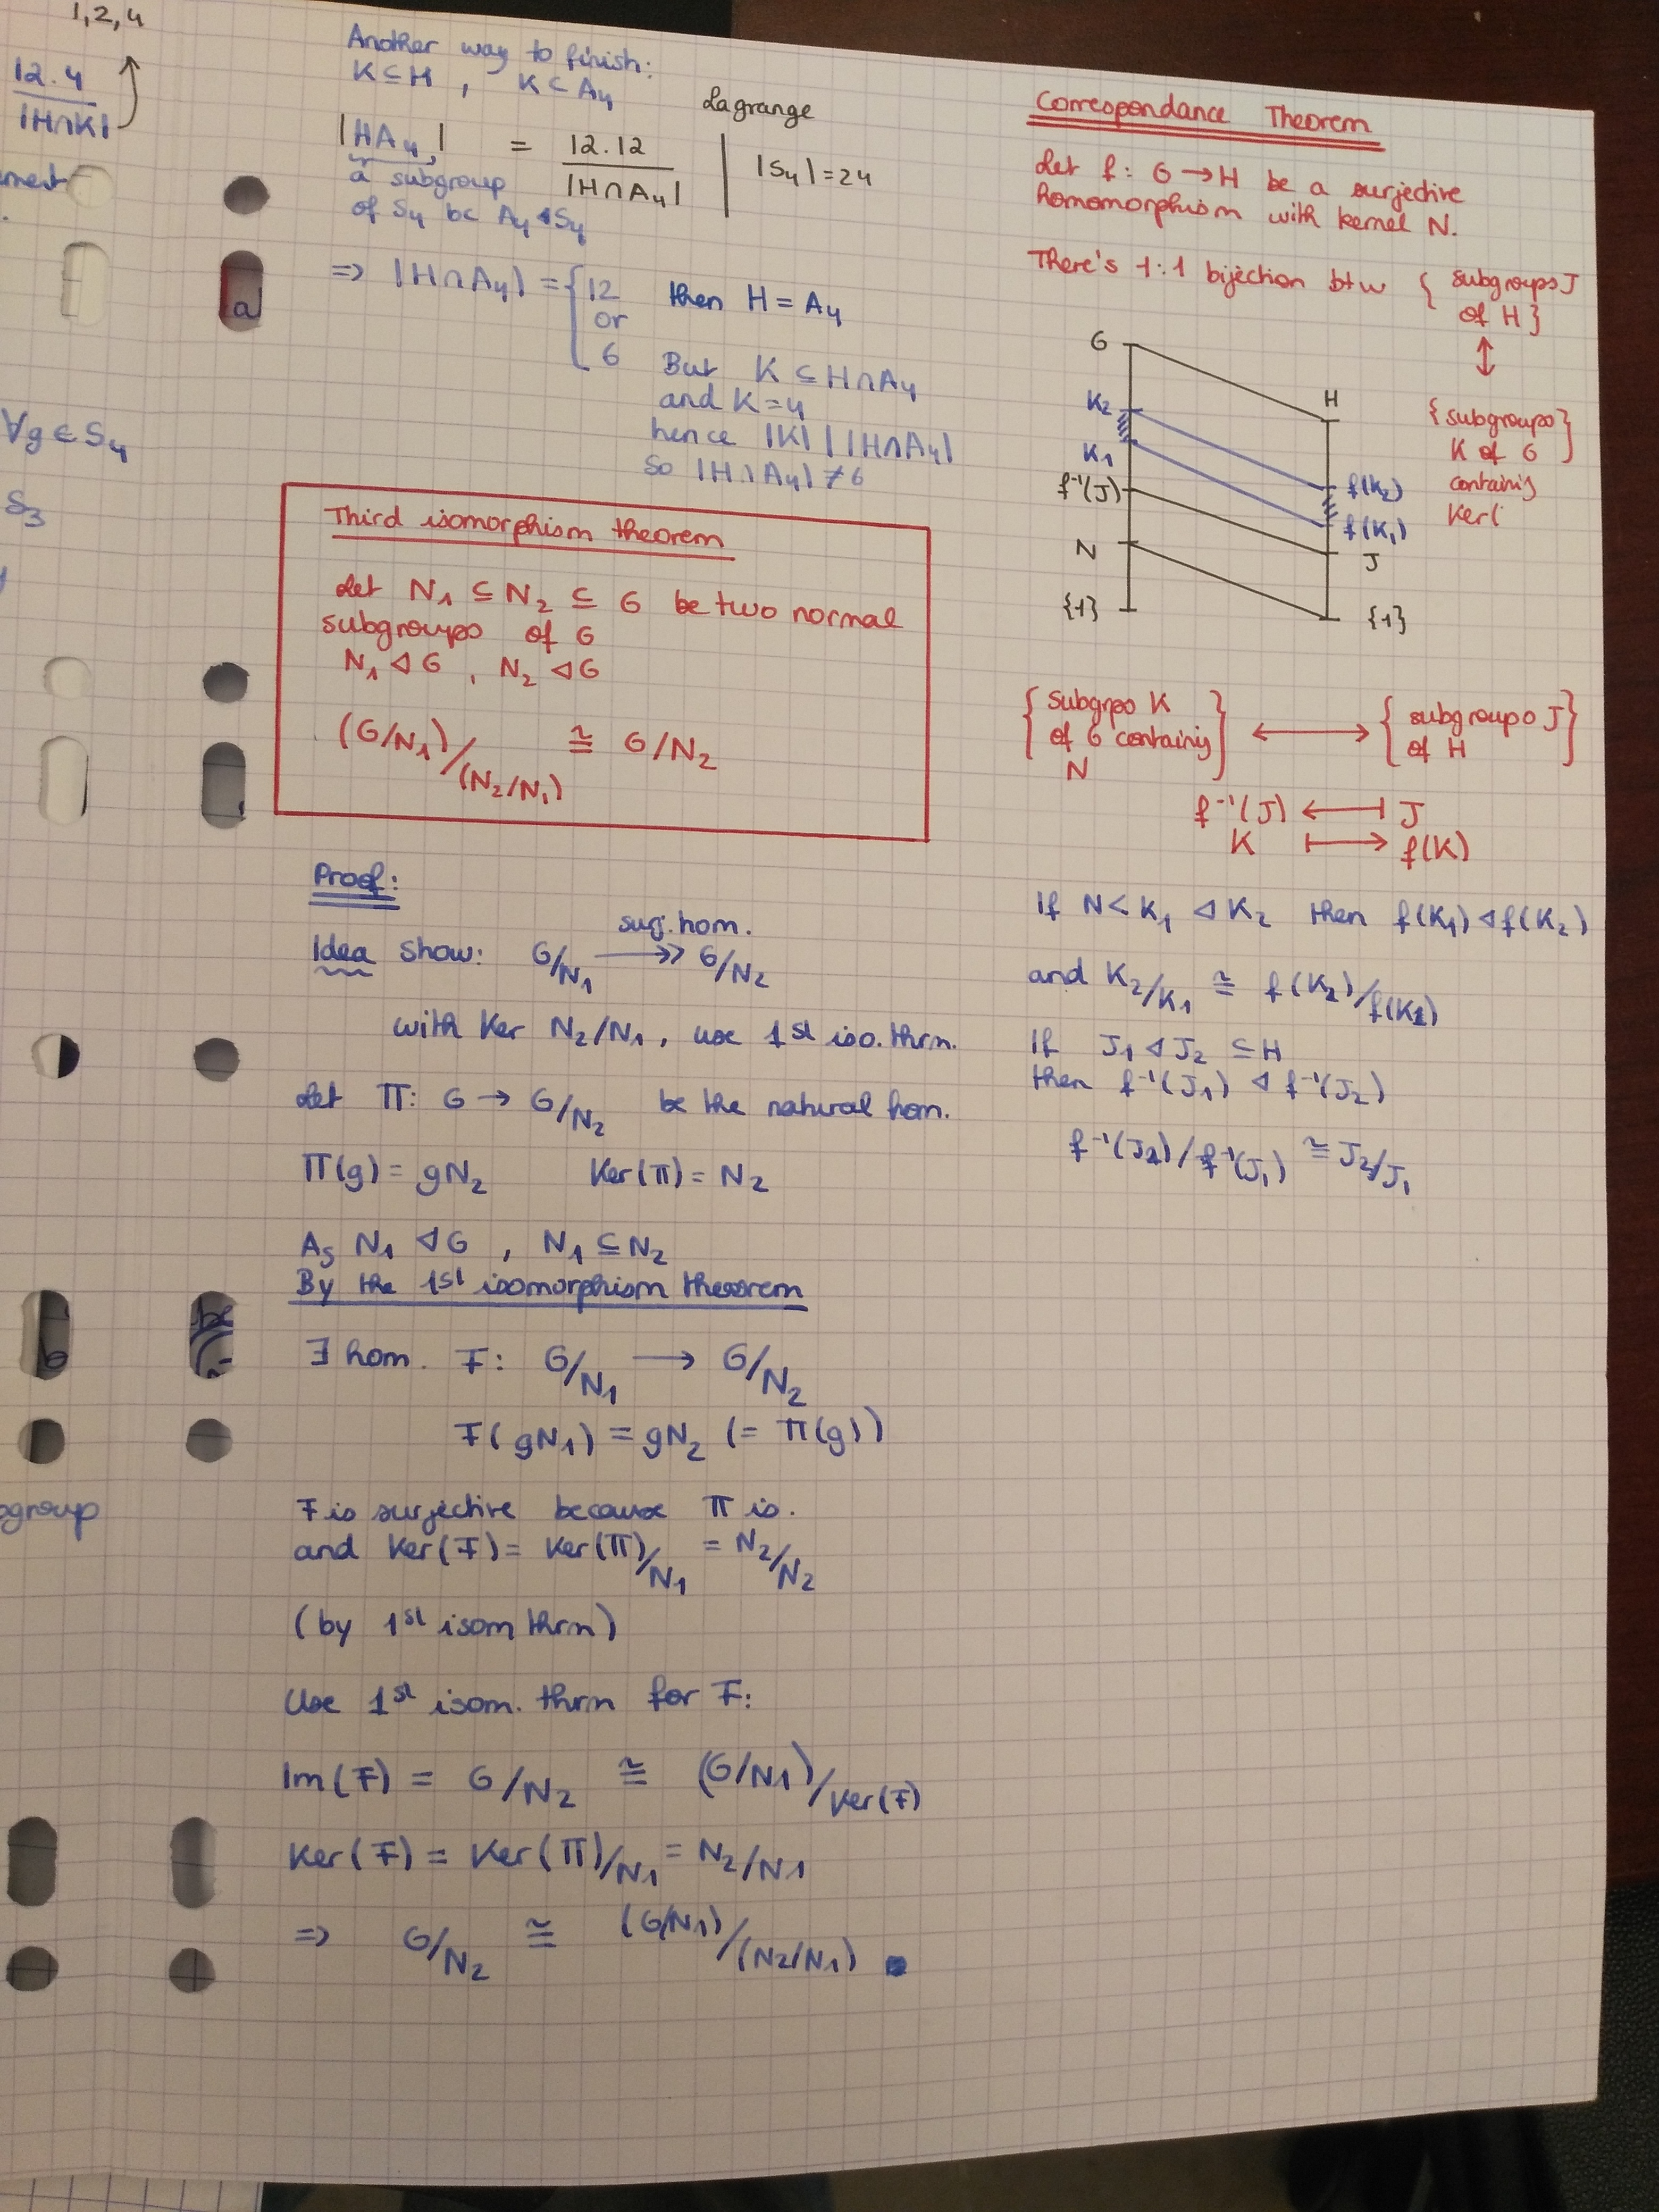 1,2,4
12.4
|H∩K|
∀g ∈ S4
S3
ogroup
Another way to finish:
K ⊆ H , K ⊂ A4
|HA4| = 12.12 / |H∩A4| | Lagrange |S4| = 24
a subgroup
of S4 bc A4 ◁ S4
=> |H∩A4| = { 12 then H = A4
or
6 But K ⊆ H∩A4
and K = 4
hence |K| | |H∩A4|
so |H∩A4| ≠ 6
Third isomorphism theorem
Let N1 ⊆ N2 ⊆ G be two normal
subgroups of G
N1 ◁ G , N2 ◁ G
(G/N1)/(N2/N1) ≅ G/N2
Proof:
Idea show: G/N1 ↠ G/N2
surj. hom.
with Ker N2/N1, use 1st iso. thrm.
Let π: G → G/N2 be the natural hom.
π(g) = gN2 Ker(π) = N2
As N1 ◁ G , N1 ⊆ N2
By the 1st isomorphism theorem
∃ hom. F: G/N1 → G/N2
F(gN1) = gN2 (= π(g))
F is surjective because π is.
and Ker(F) = Ker(π)/N1 = N2/N2
(by 1st isom thrm)
Use 1st isom. thrm for F:
Im(F) = G/N2 ≅ (G/N1)/Ker(F)
Ker(F) = Ker(π)/N1 = N2/N1
=> G/N2 ≅ (G/N1)/(N2/N1)
Correspondance Theorem
Let f: G → H be a surjective
homomorphism with kernel N.
There's 1:1 bijection btw { subgroups J
of H }
↕
{subgroups
K of G }
containig
Ker(
G
K2
K1
f⁻¹(J)
N
{1}
H
f(K2)
f(K1)
J
{1}
{ subgrps K
of G containig
N } ⟷ { subgroups J
of H }
f⁻¹(J) ⟻ J
K ⟼ f(K)
If N < K1 ◁ K2 then f(K1) ◁ f(K2)
and K2/K1 ≅ f(K2)/f(K1)
If J1 ◁ J2 ⊆ H
then f⁻¹(J1) ◁ f⁻¹(J2)
f⁻¹(J2)/f⁻¹(J1) ≅ J2/J1